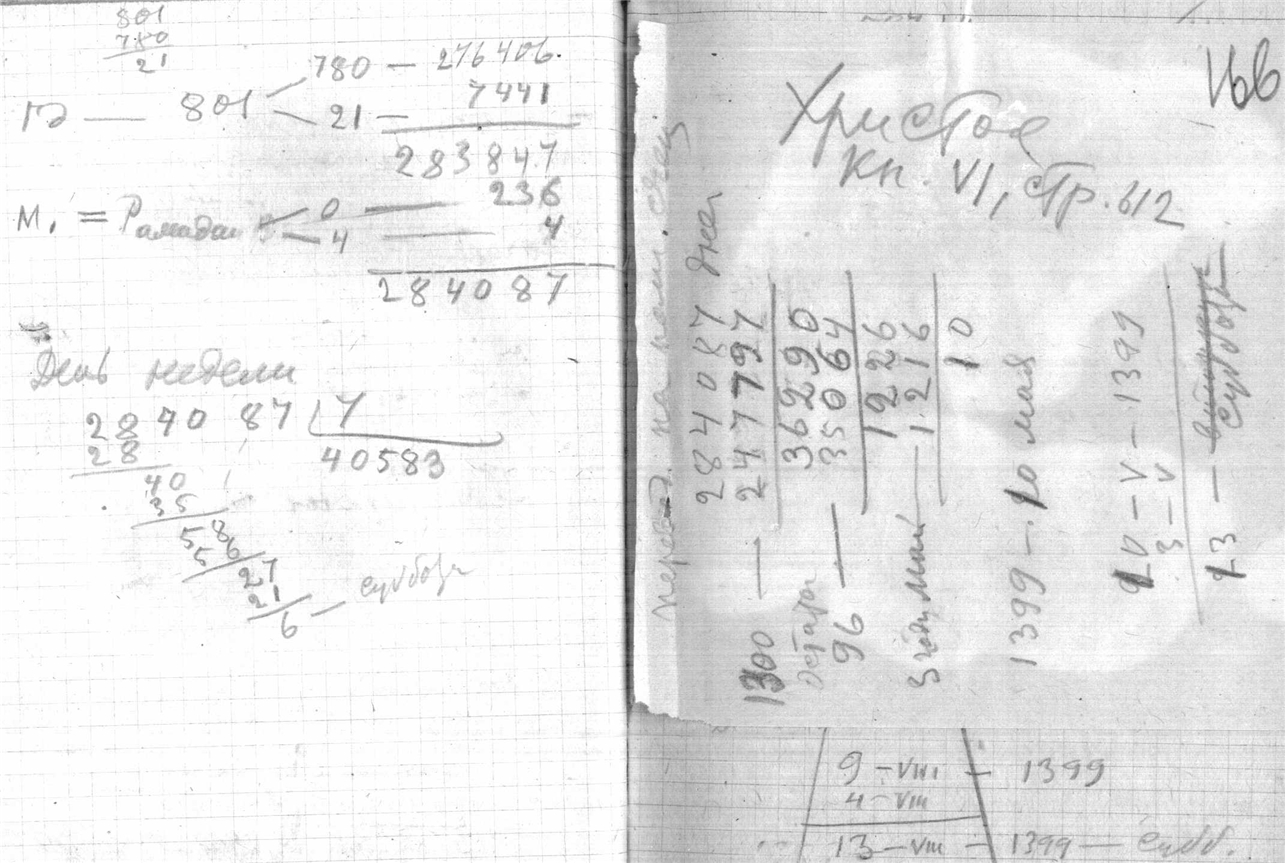 801
780
21
780 — 276406.
801
21 — 7441
283847
236
М, = Рамадан 0
4 — 4
284087
День недели
284087 | 7
28 40583
40
35
58
56
27
21
6 — суббота
Vбб
Христоя
Кн. VI, стр. 612
284087 дня
1300 — 247797
36290
96 — 35064
1226
3 года, май — 1216
10
1399 — 10 мая
10 — V — 1399
3 — V
13 — суббота
9 — VIII — 1399
4 — VIII
13 — VIII — 1399 — субб.